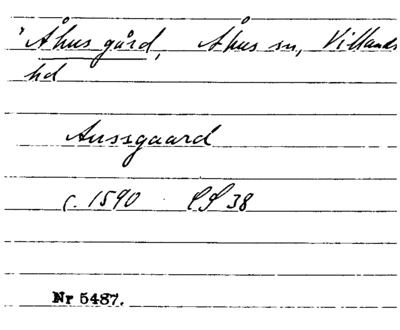 Åhus gård, Åhus sn, Villands
hd
Aussgaard
c. 1590 · 38
Nr 5487.